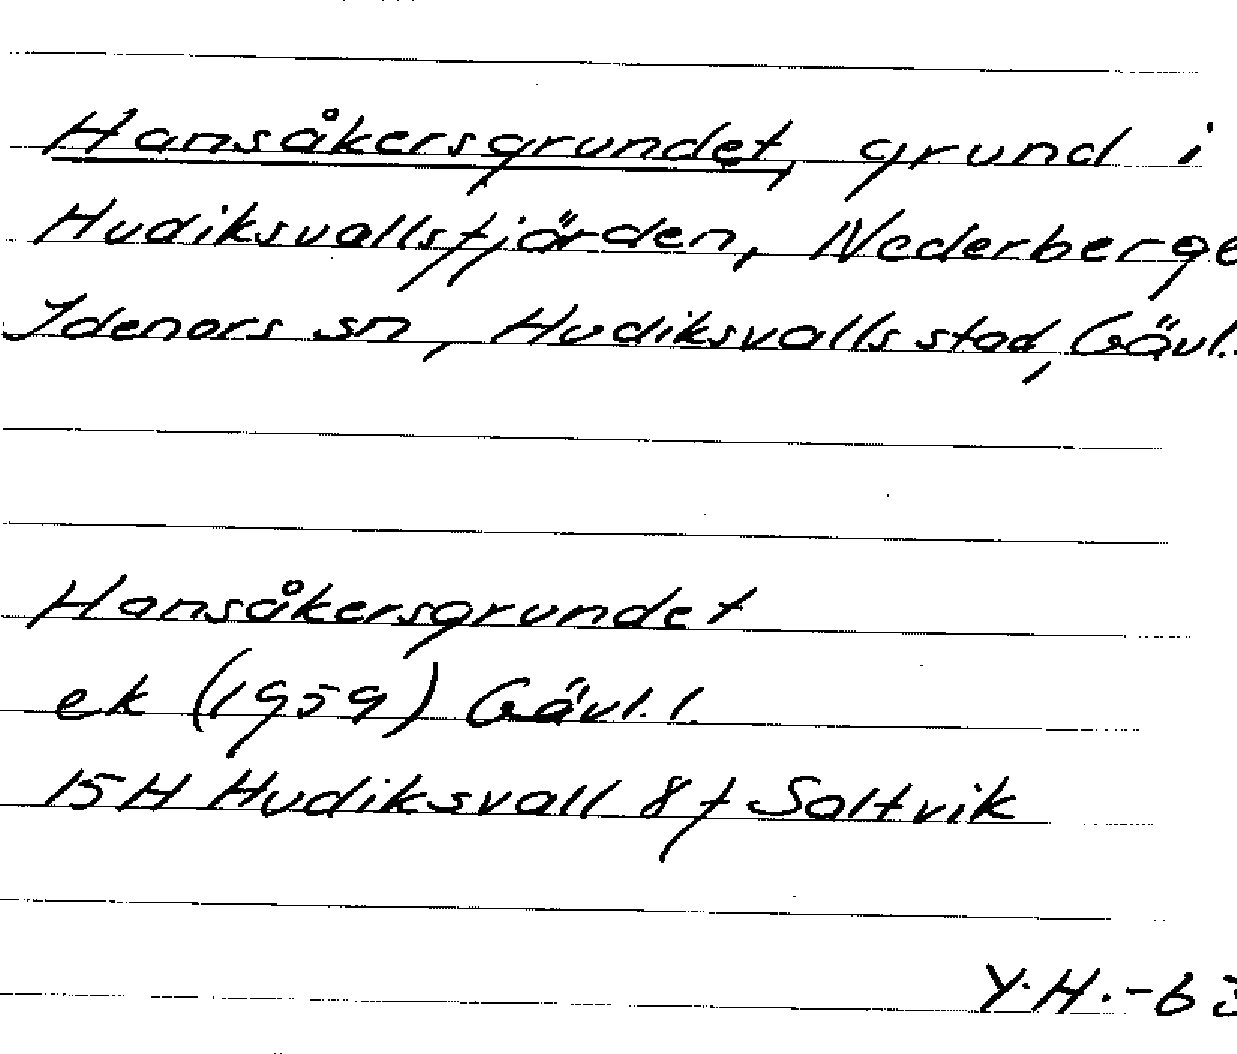 Hansåkersgrundet, grund i
Hudiksvallsfjärden, Nederberge
Idenors sn, Hudiksvalls stad, Gävl.
Hansåkersgrundet
ek (1959) Gävl. l.
15H Hudiksvall 8f Saltvik
Y.H.-63